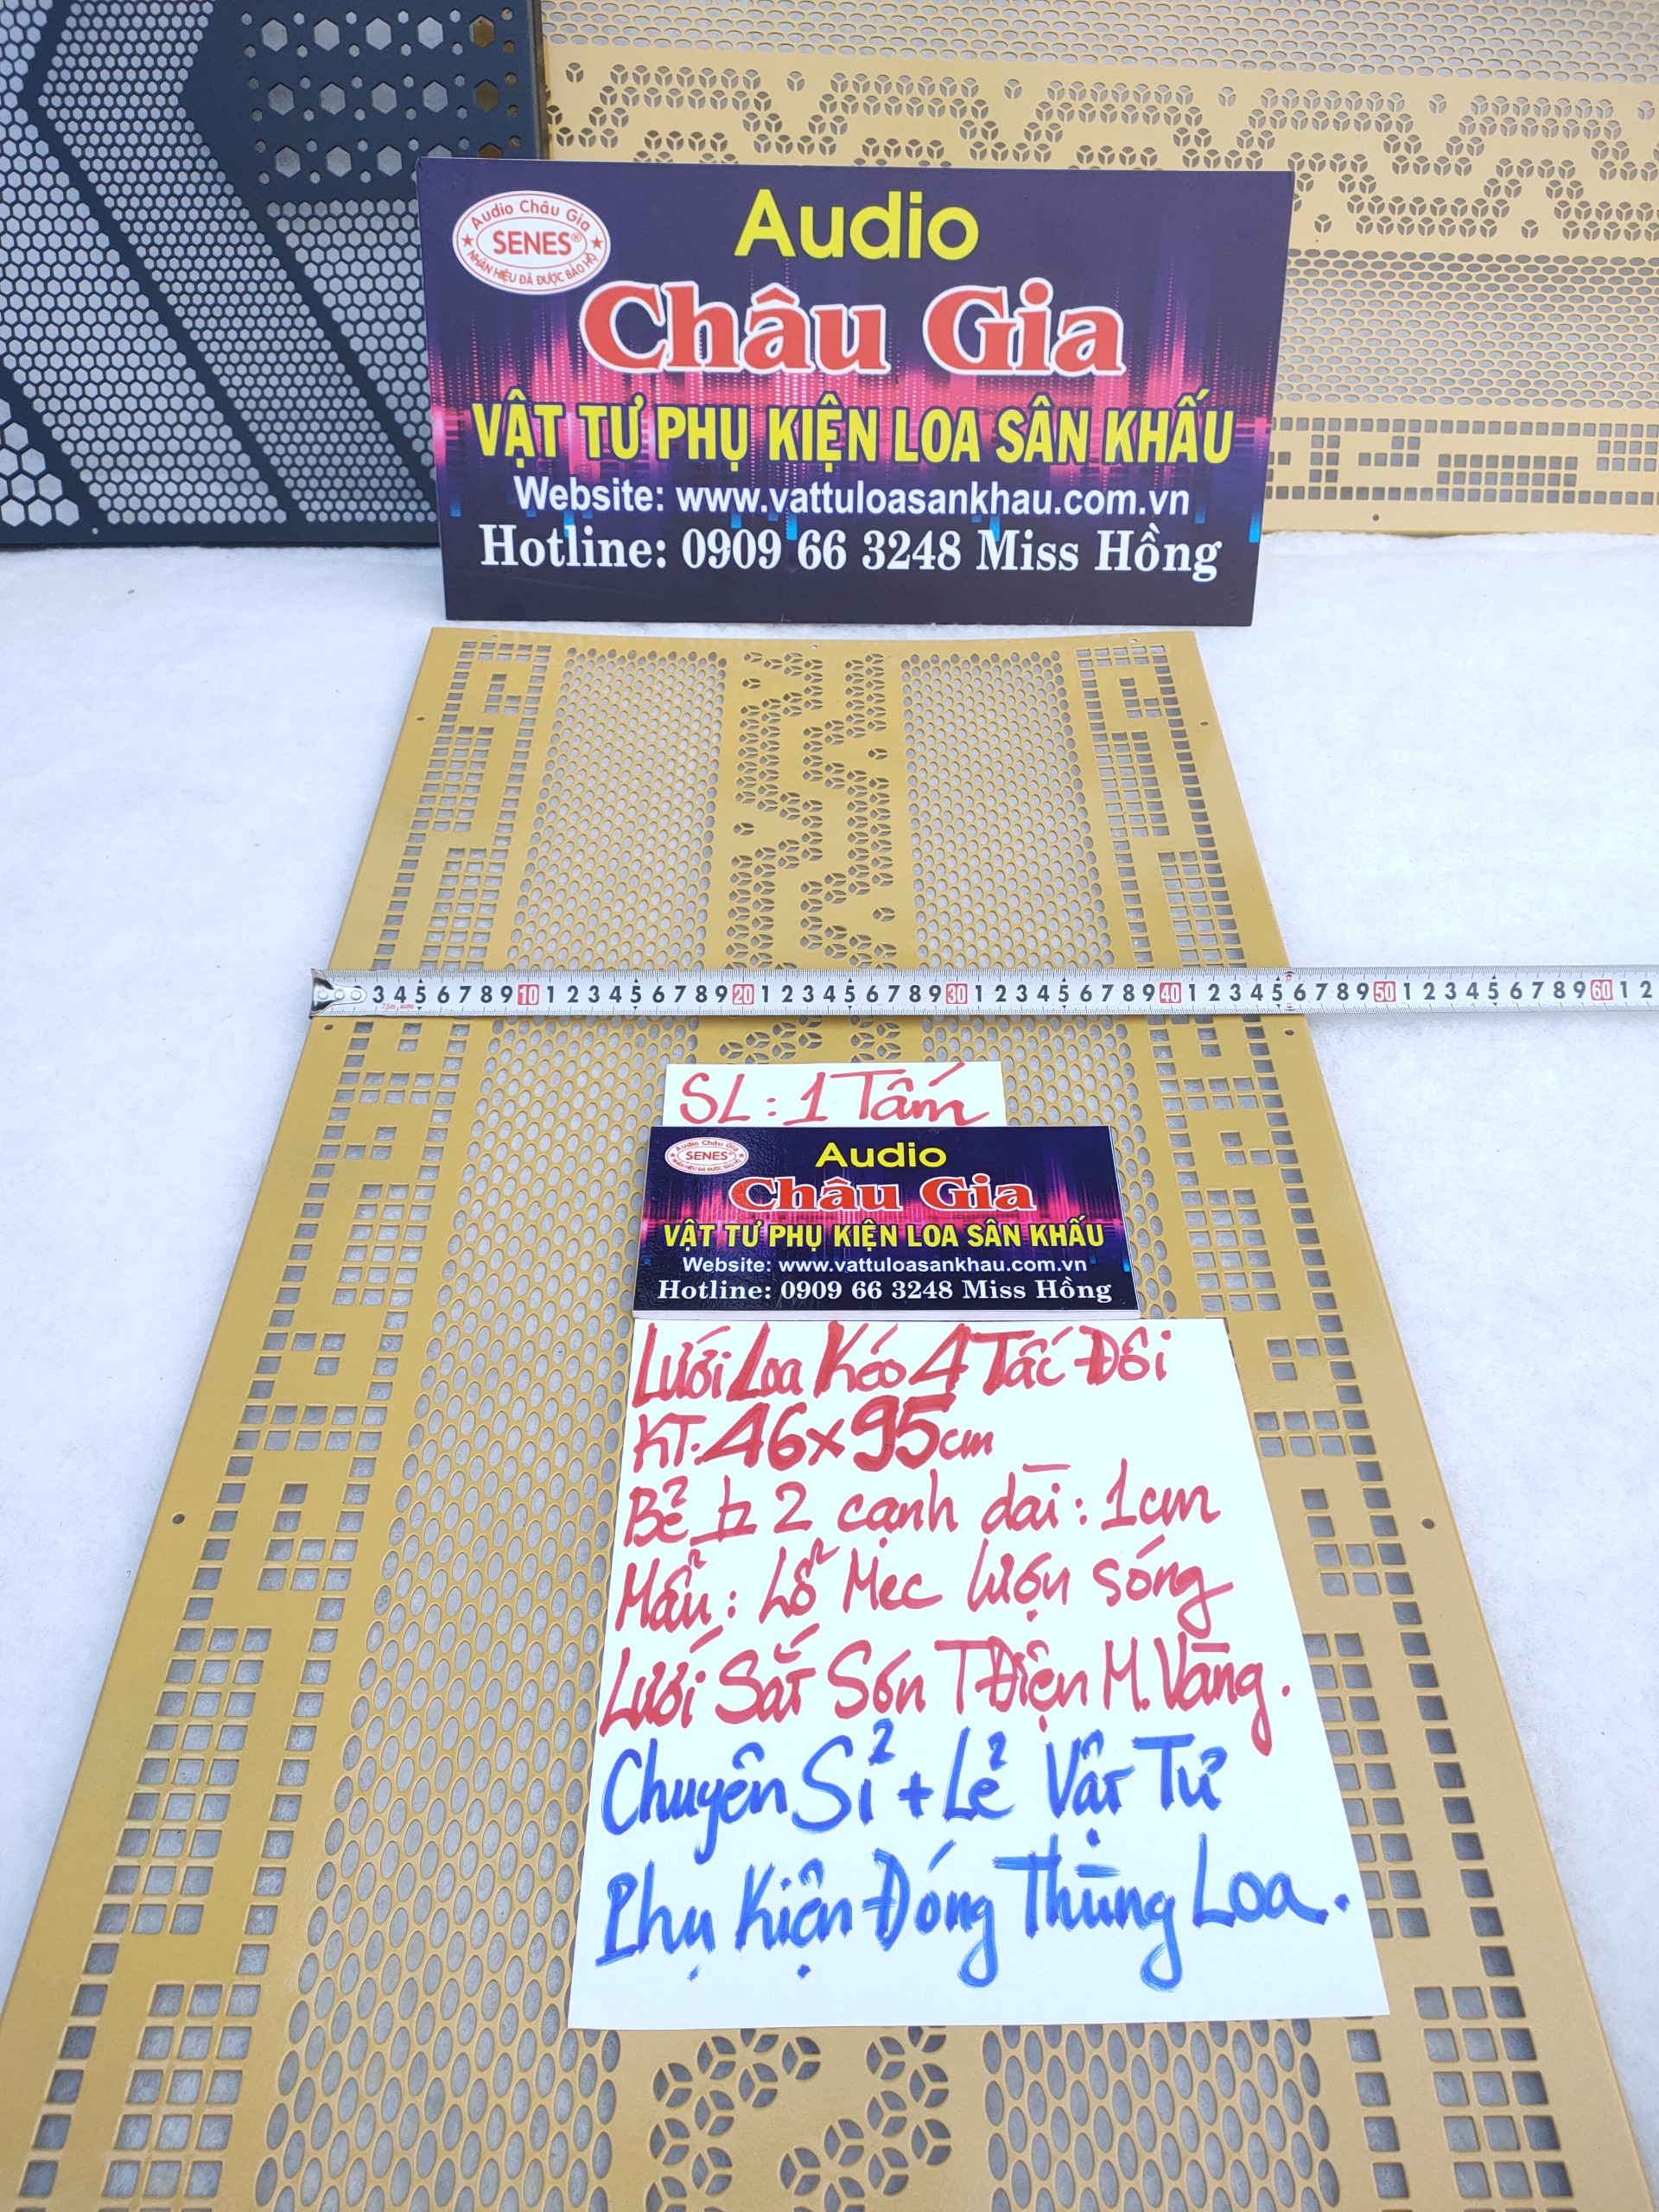 Audio Châu Gia
SENES®
NHÃN HIỆU ĐÃ ĐƯỢC BẢO HỘ
Audio
Châu Gia
VẬT TƯ PHỤ KIỆN LOA SÂN KHẤU
Website: www.vattuloasankhau.com.vn
Hotline: 0909 66 3248 Miss Hồng
3 4 5 6 7 8 9 10 1 2 3 4 5 6 7 8 9 20 1 2 3 4 5 6 7 8 9 30 1 2 3 4 5 6 7 8 9 40 1 2 3 4 5 6 7 8 9 50 1 2 3 4 5 6 7 8 9 60 1 2
SL: 1 Tấm
Audio Châu Gia
SENES®
NHÃN HIỆU ĐÃ ĐƯỢC BẢO HỘ
Audio
Châu Gia
VẬT TƯ PHỤ KIỆN LOA SÂN KHẤU
Website: www.vattuloasankhau.com.vn
Hotline: 0909 66 3248 Miss Hồng
Lưới Loa Kéo 4 Tấc Đôi
KT: 46x95cm
Bẻ 2 cạnh dài: 1cm
Mẫu: Lỗ Mec lượn sóng
Lưới Sắt Sơn T Điện M. Vàng.
Chuyên Sỉ + Lẻ Vật Tư
Phụ Kiện Đóng Thùng Loa.